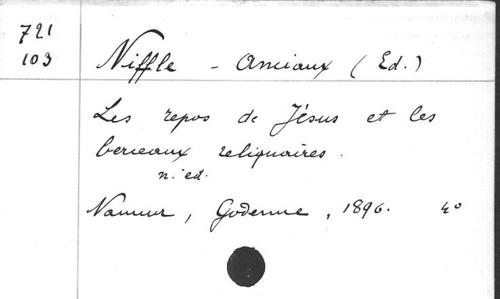 721
103
Niffle - Anciaux (Ed.)
Les repos de Jésus et les
berceaux reliquaires.
n. ed.
Namur, Godenne, 1896. 4º